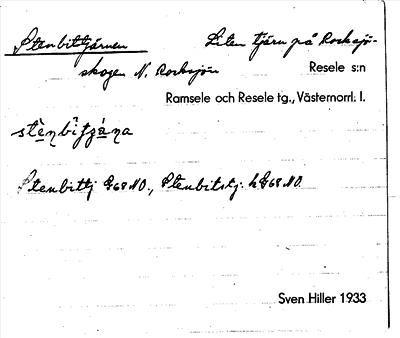 Stenbittjärnen Liten tjärn på Rocksjö-
skogen N. Rocksjön
Resele s:n
Ramsele och Resele tg., Västernorrl. l.
Stenbittj G68 NO., Stenbitstj. h G68 NO.
Sven Hiller 1933